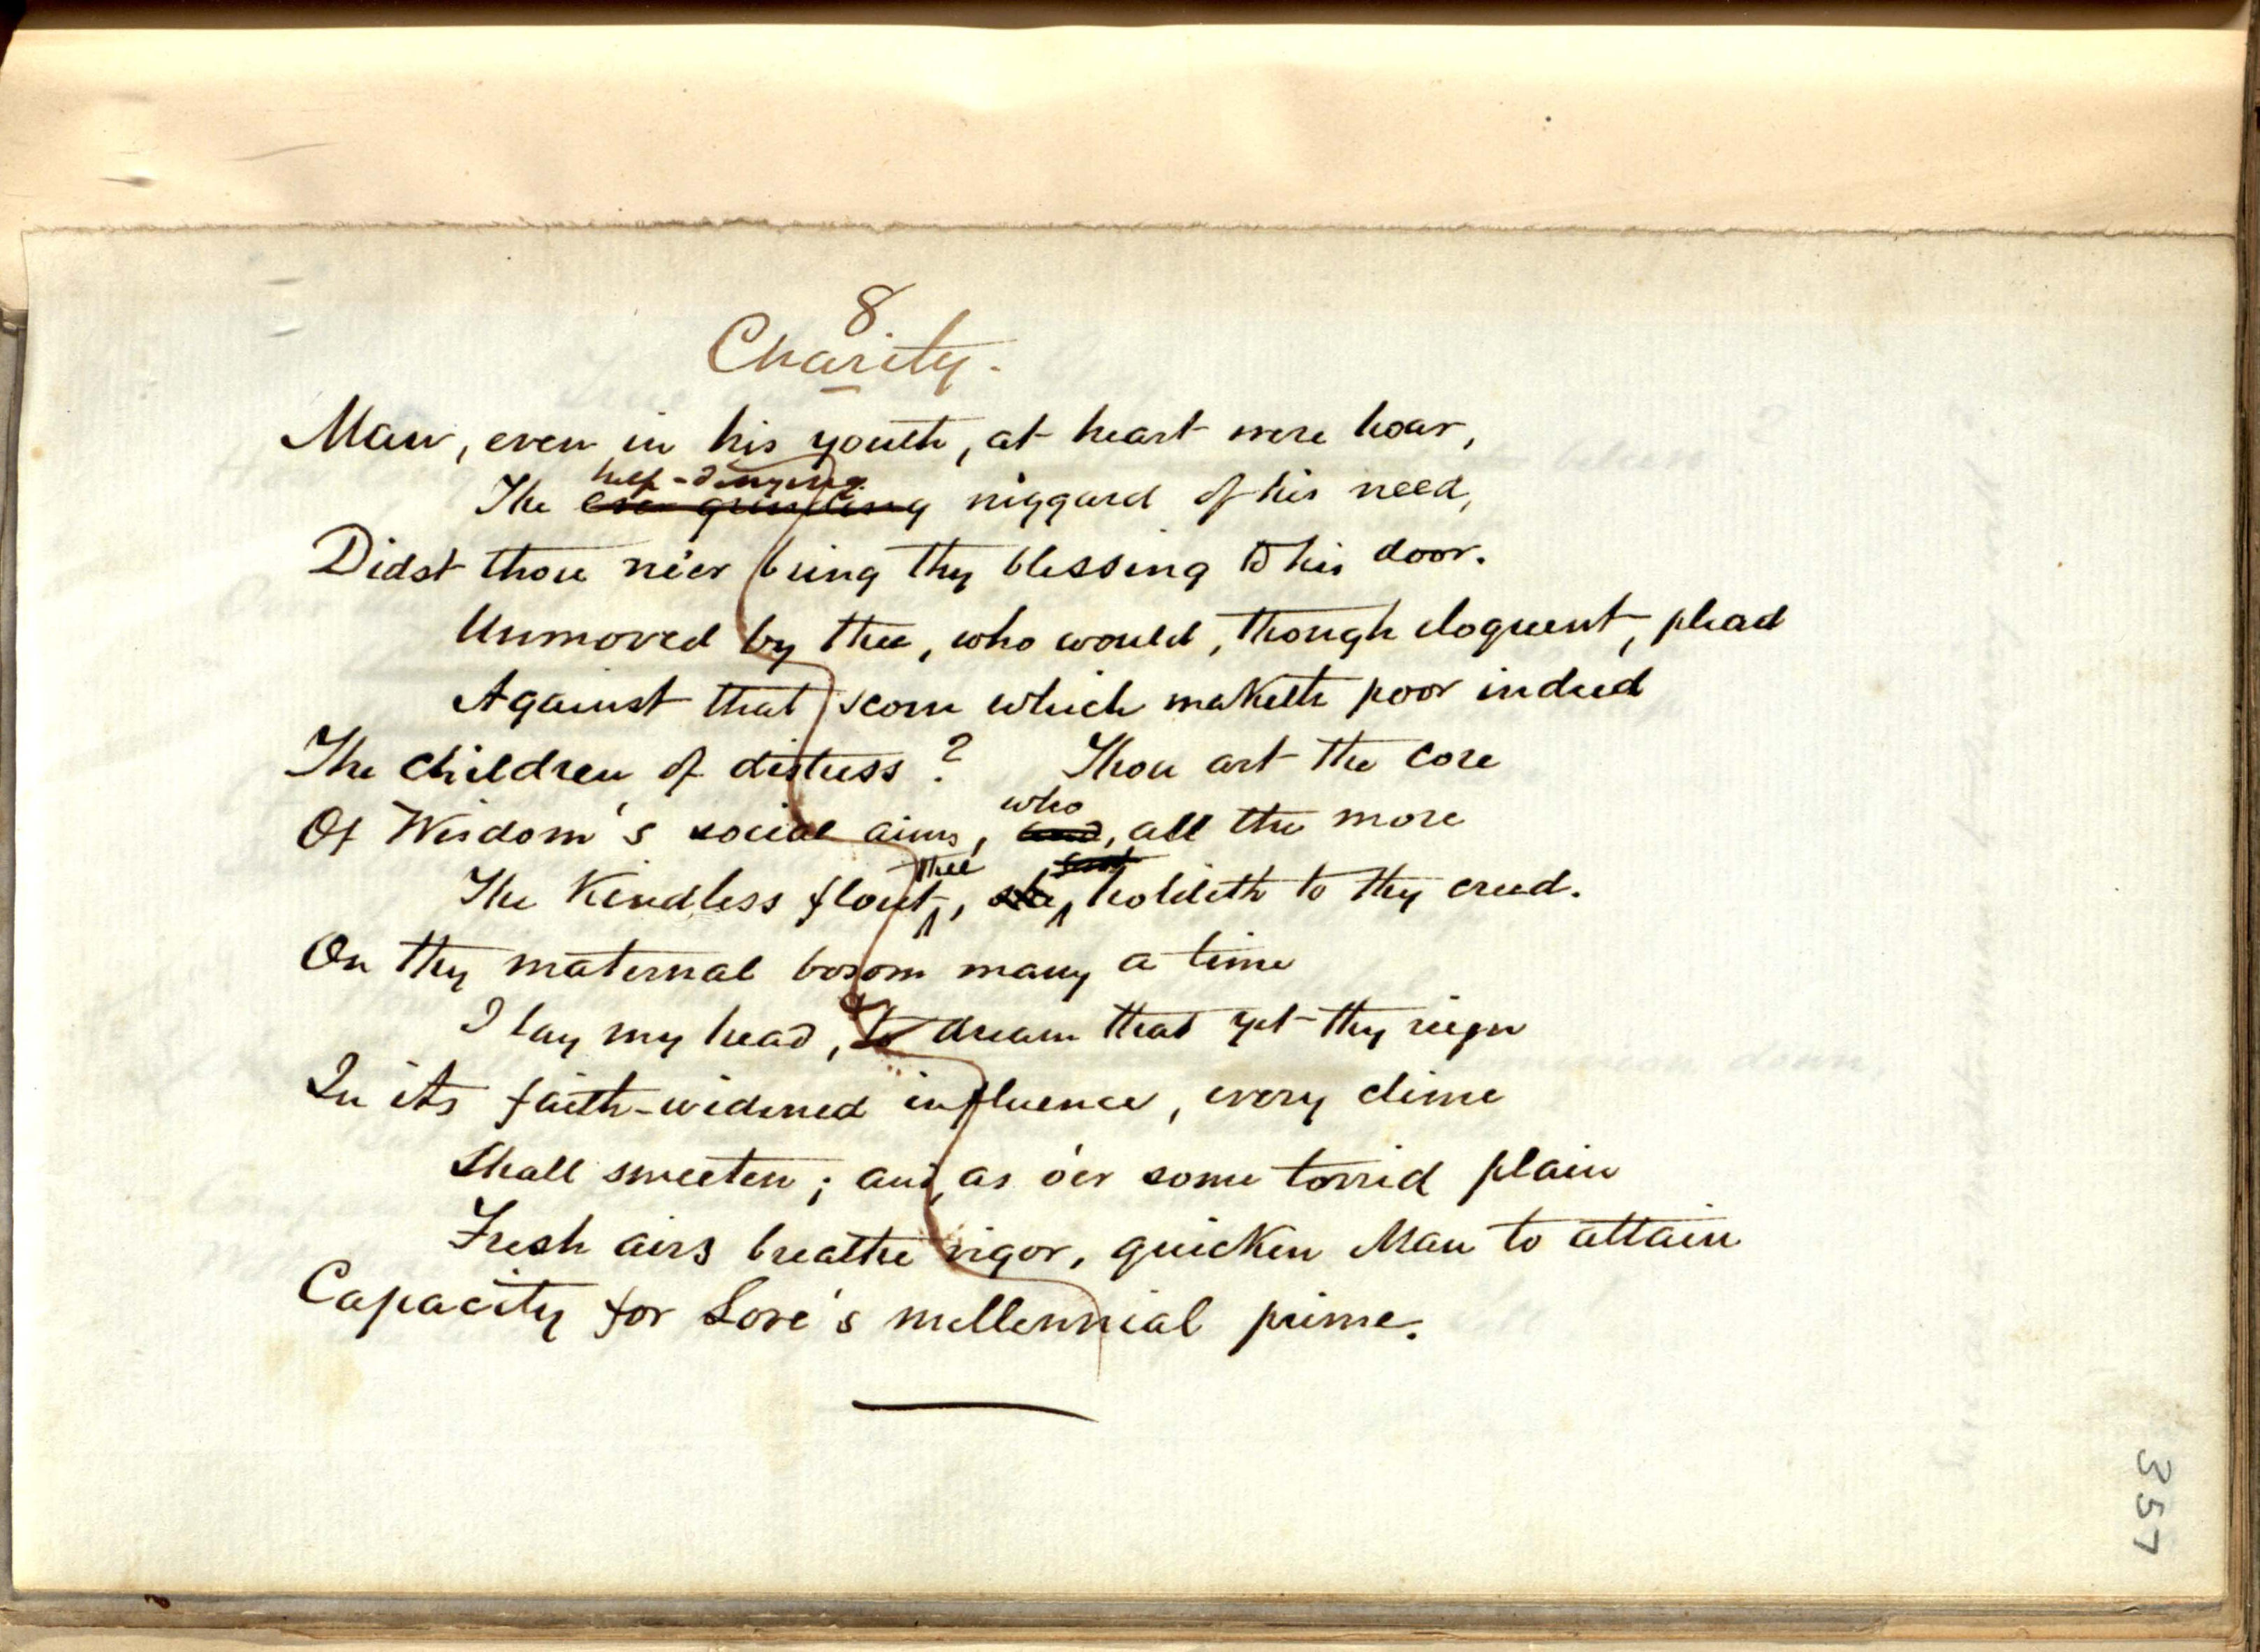 8
Charity.
Man, even in his youth, at heart were hoar,
help-denying
The ever grinding niggard of his need,
Didst thou ne'er bring thy blessing to his door.
Unmoved by thee, who would, though eloquent, plead
Against that scorn which maketh poor indeed
The children of distress? Thou art the core
who
Of Wisdom's social aims, and, all the more
thee
The Kindless flout, she, holdeth to thy creed.
On thy maternal bosom many a time
I lay my head, to dream that yet thy reign
In its faith-widened influence, every clime
Shall sweeten; and, as o'er some torrid plain
Fresh airs breathe vigor, quicken Man to attain
Capacity for Love's millennial prime.
357